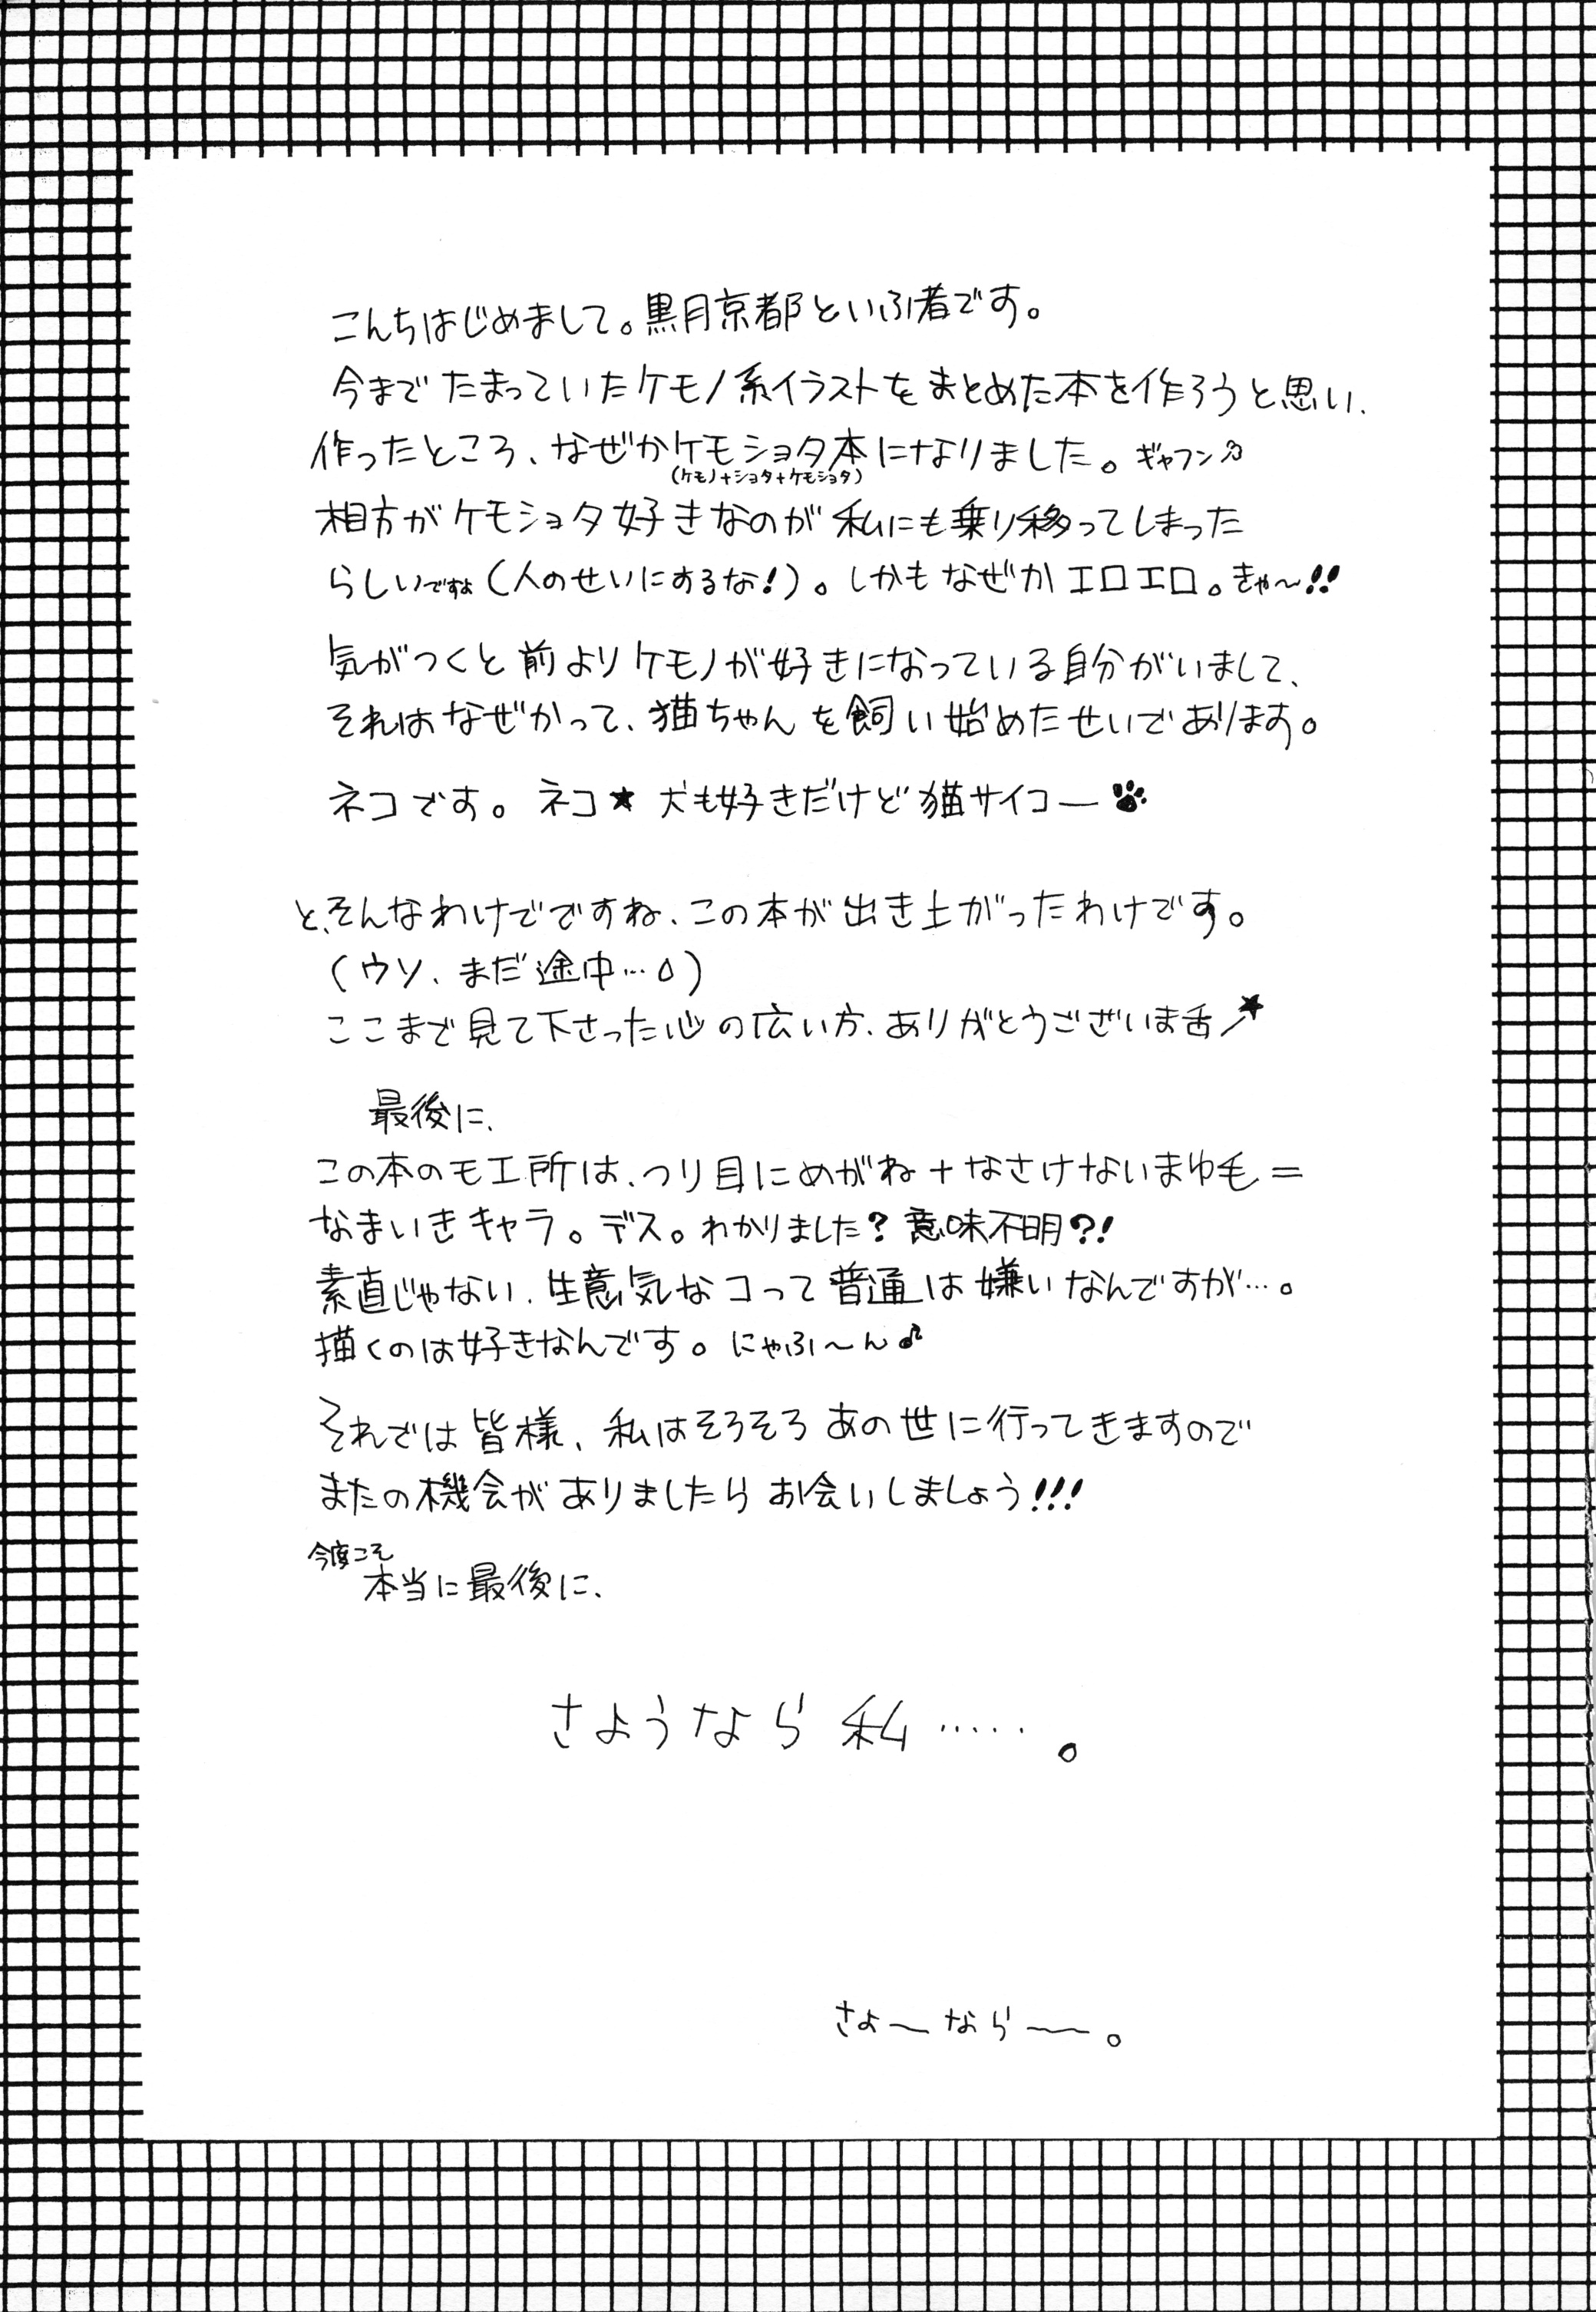 こんちはじめまして。黒月京都といふ者です。
今までたまっていたケモノ系イラストをまとめた本を作ろうと思い、
作ったところ、なぜかケモショタ本になりました。ギャフン
(ケモノ+ショタ+ケモショタ)
相方がケモショタ好きなのが私にも乗り移ってしまった
らしいですよ(人のせいにするな!)。しかもなぜかエロエロ。きゃ〜!!
気がつくと前よりケモノが好きになっている自分がいまして、
それはなぜかって、猫ちゃんを飼い始めたせいであります。
ネコです。ネコ★犬も好きだけど猫サイコー
と、そんなわけでですね、この本が出き上がったわけです。
(ウソ、まだ途中…)
ここまで見て下さった心の広い方、ありがとうございま舌★
最後に、
この本のモエ所は、つり目にめがね+なさけないまゆ毛=
なまいきキャラ。デス。わかりました?意味不明?!
素直じゃない、生意気なコって普通は嫌いなんですが…。
描くのは好きなんです。にゃふ〜ん♪
それでは皆様、私はそろそろあの世に行ってきますので
またの機会がありましたらお会いしましょう!!!
今度こそ
本当に最後に、
さようなら私……。
さよ〜なら〜。